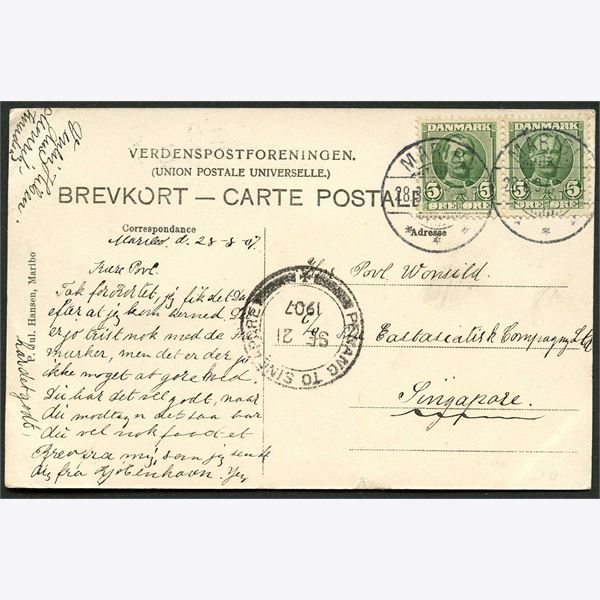 VERDENSPOSTFORENINGEN.
(UNION POSTALE UNIVERSELLE.)
BREVKORT — CARTE POSTALE
DANMARK
5 5
ØRE ØRE
DANMARK
5 5
ØRE ØRE
MARIBO
28.8
MARIBO
Correspondance
Maribo d. 28-8 07.
Kære Povl.
Tak for Kortet, jeg fik det
efter at jeg kom herned.
er jo trist nok med de
mærker, men det er der jo
ikke noget at göre ved.
Du har det vel godt, naar
du modtager det saa har
du vel nok faaet et
Brev fra mig, som jeg sendte
dig fra Kjøbenhavn. Jeg
Adresse
Hr Povl Wonsild.
c/o
Eastasiatisk Compagny Ltd
Singapore.
PENANG TO SINGAPORE
SE 21
1907
P. Jul. Hansen, Maribo